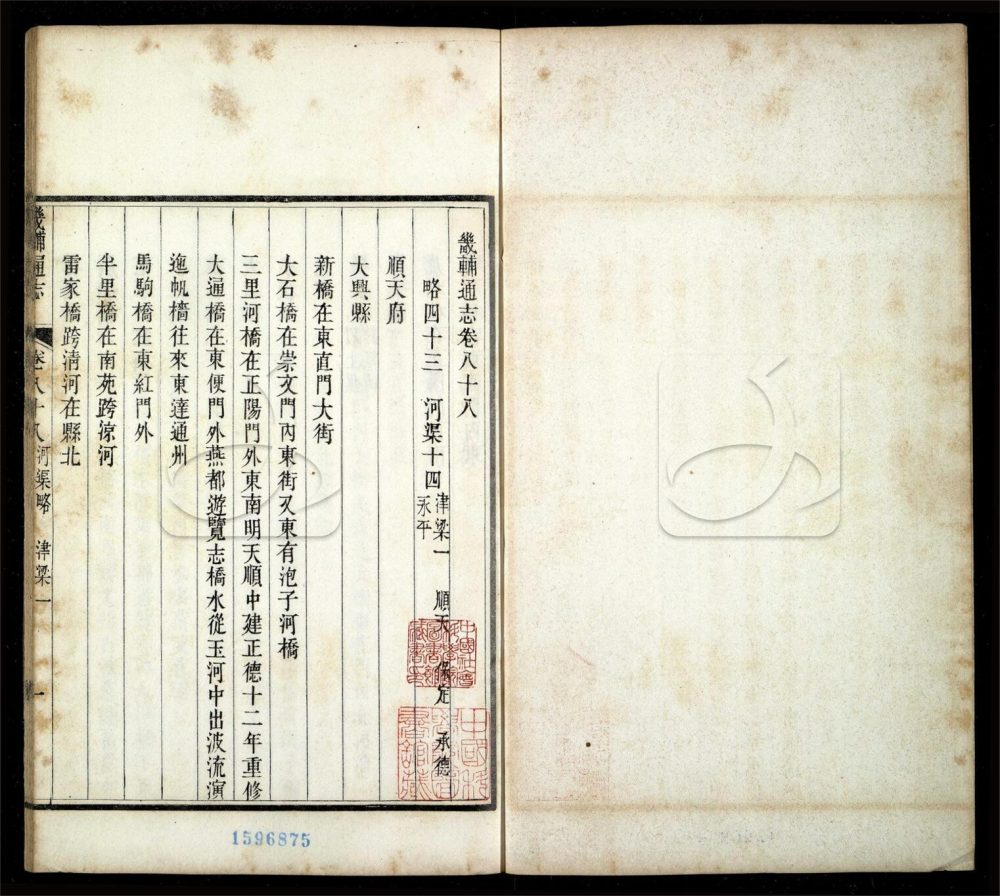 畿輔通志卷八十八
略四十三　河渠十四　津梁一　順天　保定　承德
永平
順天府
大興縣
新橋在東直門大街
大石橋在崇文門內東街又東有泡子河橋
三里河橋在正陽門外東南明天順中建正德十二年重修
大通橋在東便門外燕都遊覽志橋水從玉河中出波流演
迤帆檣往來東達通州
馬駒橋在東紅門外
半里橋在南苑跨涼河
雷家橋跨清河在縣北
畿輔通志　卷八十八　河渠略　津梁一　一
1596875